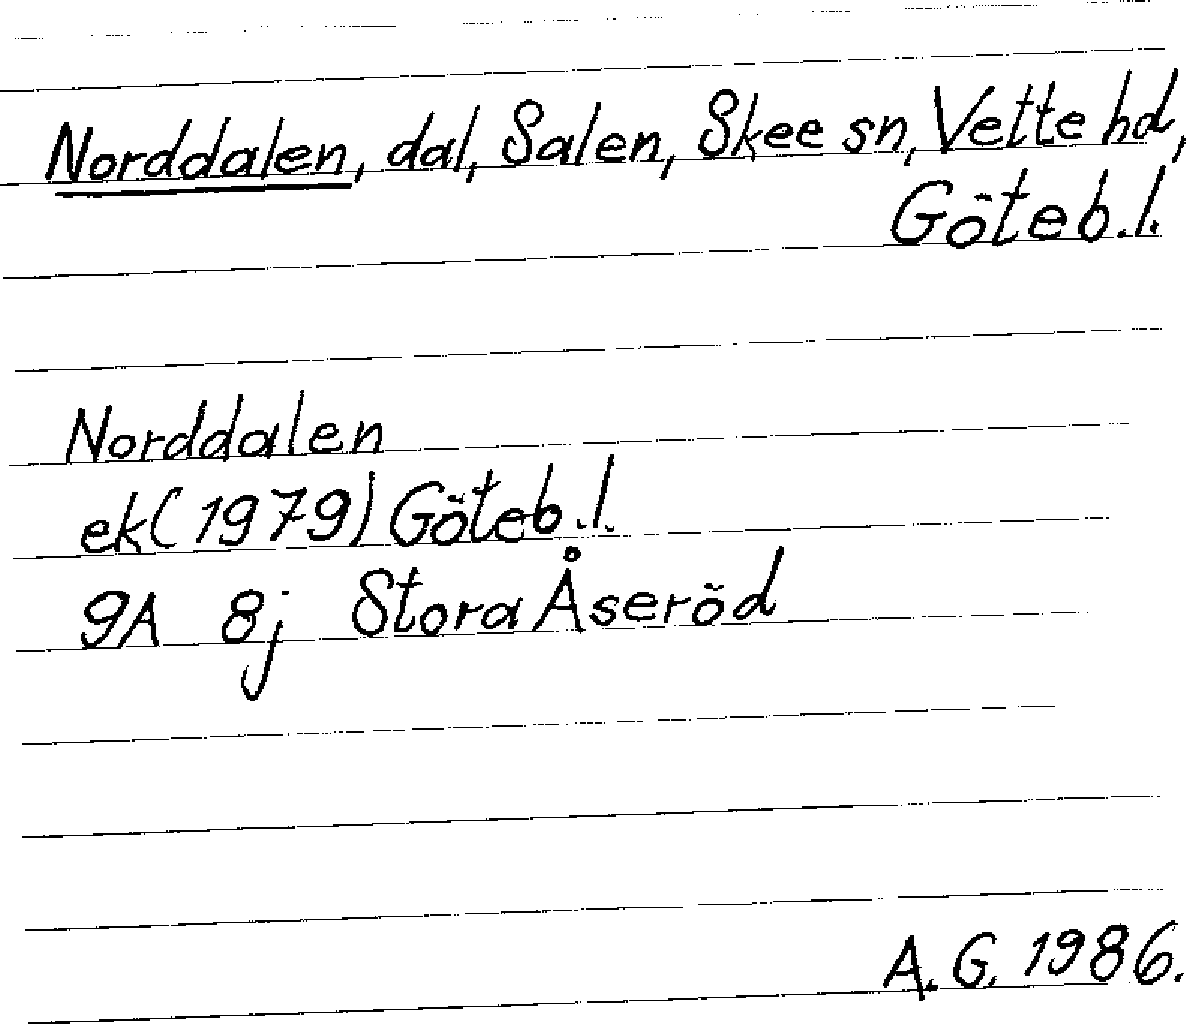 Norddalen, dal, Salen, Skee sn, Vette hd,
Göteb.l.
Norddalen
ek (1979) Göteb.l.
9A 8j Stora Åseröd
A.G. 1986.